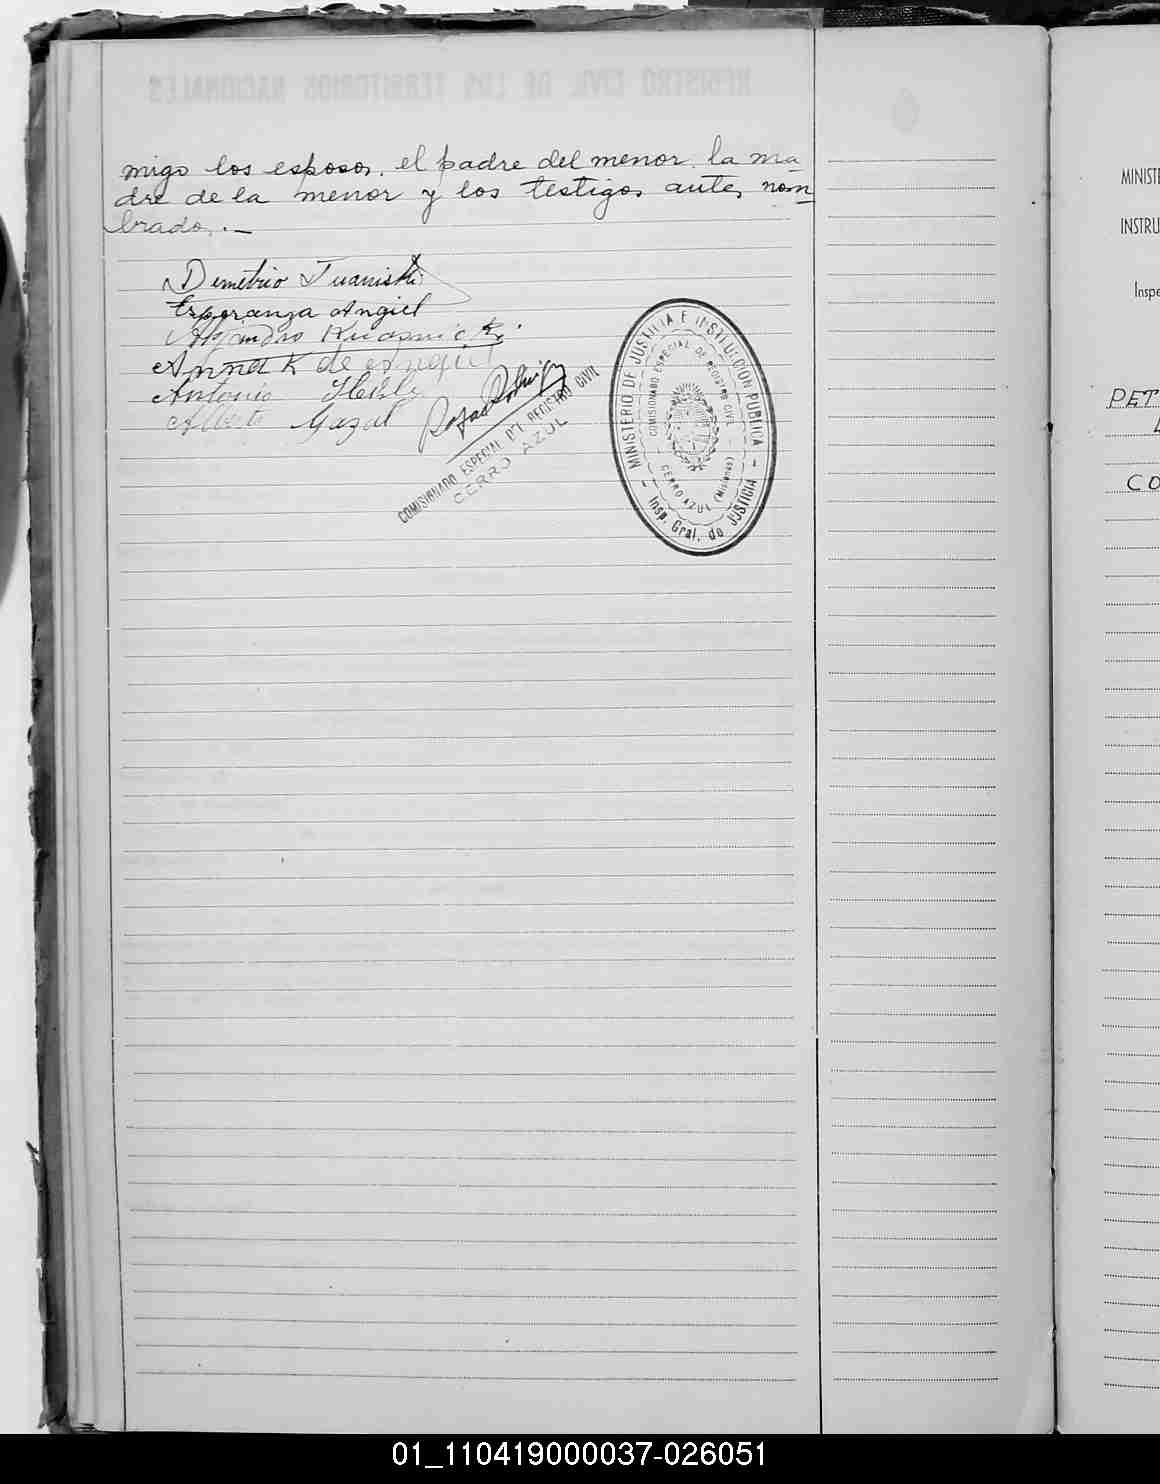 migo los esposos, el padre del menor, la ma-
dre de la menor y los testigos antes nom=
brados.-
Demetrio Iuaniski
Esperanza Angiel
Anna K de Angiel
Antonio
Gazal
COMISIONADO ESPECIAL DEL REGISTRO CIVIL
CERRO AZUL
MINISTERIO DE JUSTICIA E INSTRUCCION PUBLICA
COMISIONADO ESPECIAL DE REGISTRO CIVIL
CERRO AZUL (Misiones)
Insp. Gral. de JUSTICIA
REGISTRO CIVIL DE LOS TERRITORIOS NACIONALES
MINISTE
INSTRU
Inspe
PET
CO
01_110419000037-026051